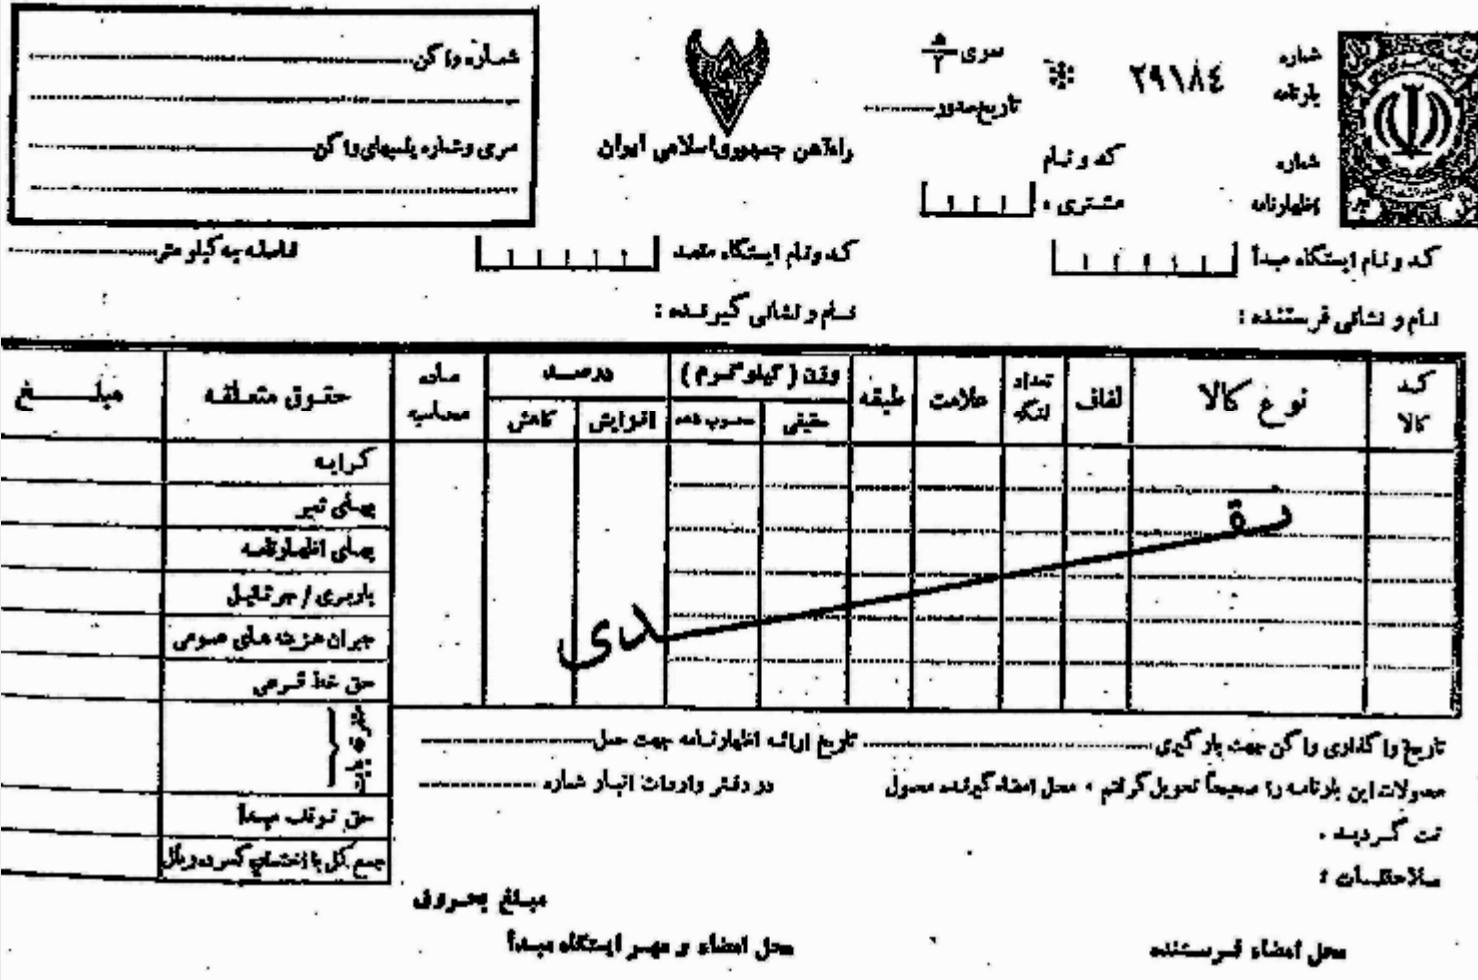 شماره بارنامه ۲۹۱۸٤
سری ۵/۲
تاریخ صدور
راه‌آهن جمهوری اسلامی ایران
شماره واگن
سری و شماره پلمبهای واگن
شماره اظهارنامه
کد و نام مشتری :
کد و نام ایستگاه مبدأ
کد و نام ایستگاه مقصد
فاصله به کیلومتر
نام و نشانی فرستنده :
نام و نشانی گیرنده :
کد کالا
نوع کالا
لفاف
تعداد لنگه
علامت
طبقه
وزن ( کیلوگرم )
حقیقی
محسوب شده
درصد
افزایش
کاهش
حقوق متعلقه
مبلغ
نقدی
کرایه
بهای تمبر
بهای اظهارنامه
باربری / جرثقیل
جبران هزینه های عمومی
حق خط فرعی
حق توقف مبدأ
تاریخ واگذاری واگن جهت بارگیری
تاریخ ارائه اظهارنامه جهت حمل
محمولات این بارنامه را صحیحاً تحویل گرفتم ، محل امضاء گیرنده محمول
در دفتر واردات انبار شماره
ثبت گردید .
ملاحظات :
مبلغ بحروف
محل امضاء فرستنده
محل امضاء و مهر ایستگاه مبدأ